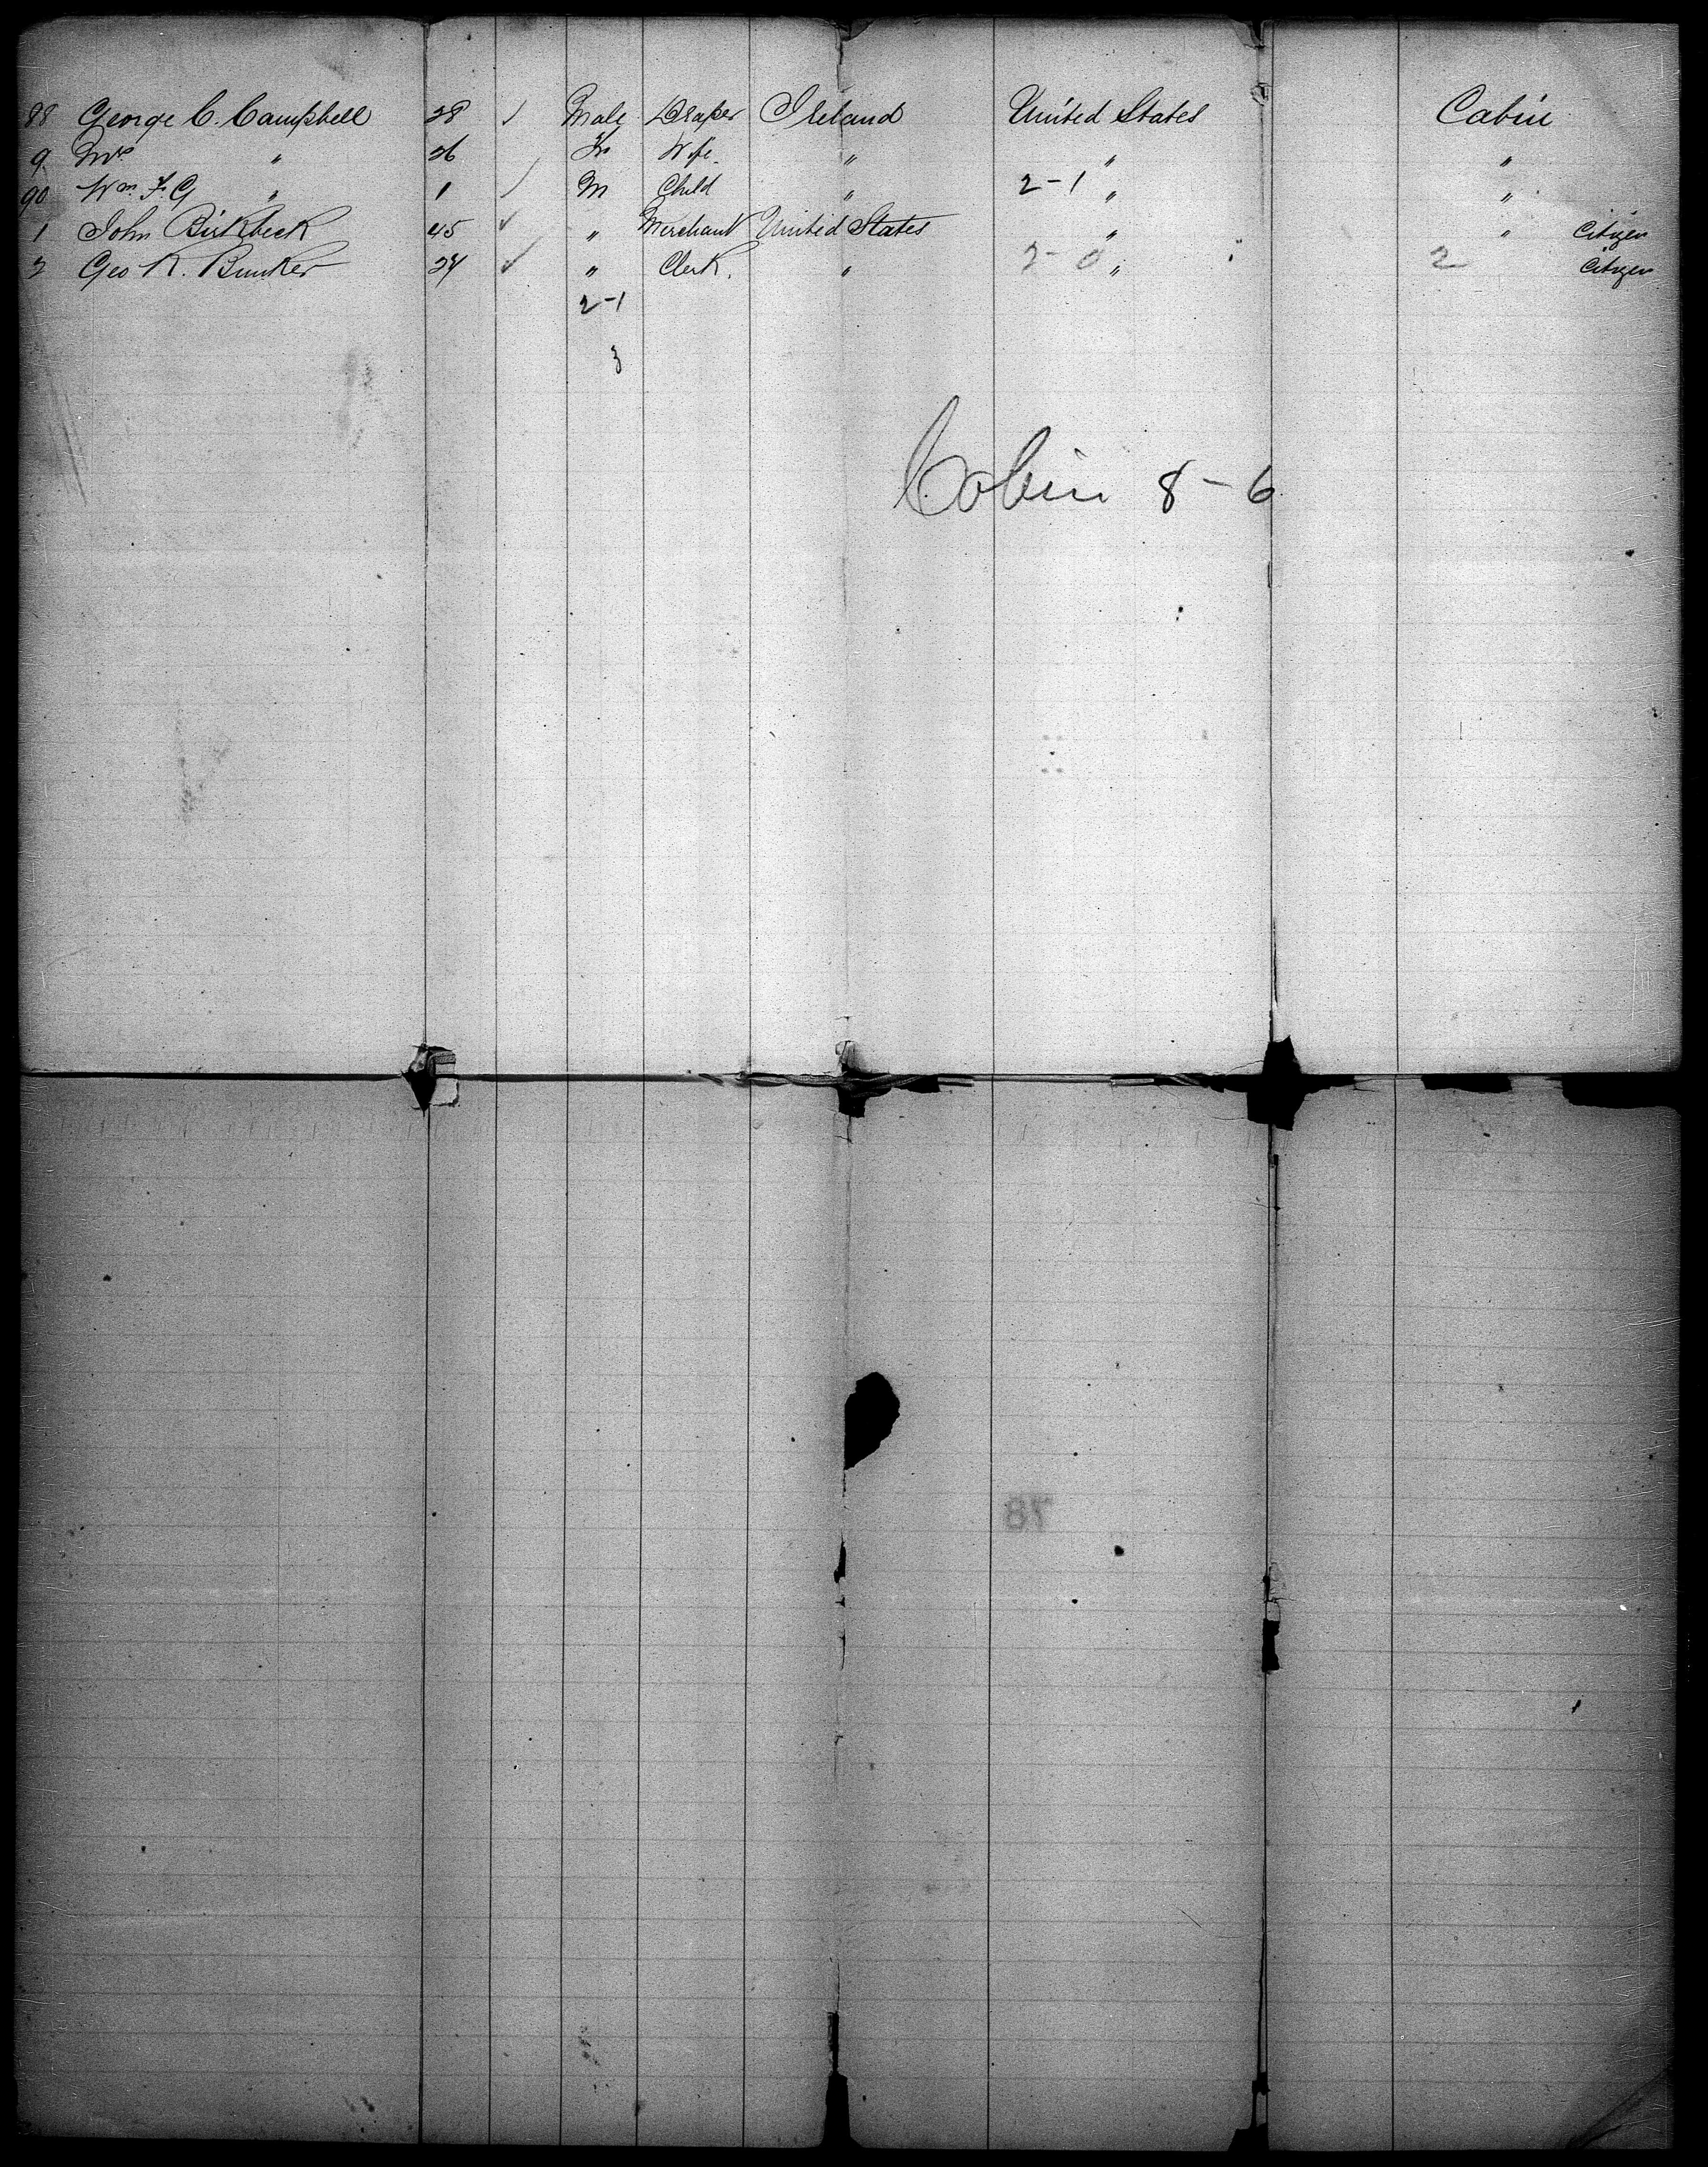 88 George C. Campbell 28 ✓ Male Draper Ireland United States Cabin
9 Mrs " 26 Fm Wife " " "
90 Wm. F. G " 1 M Child " 2-1 " "
1 John Birkbeck 45 ✓ " Merchant United States " " Citizen
2 Geo K. Bunker 24 ✓ " Clerk. " 2-0 " 2 Citizen
2-1
3
Cabin 8-6
78